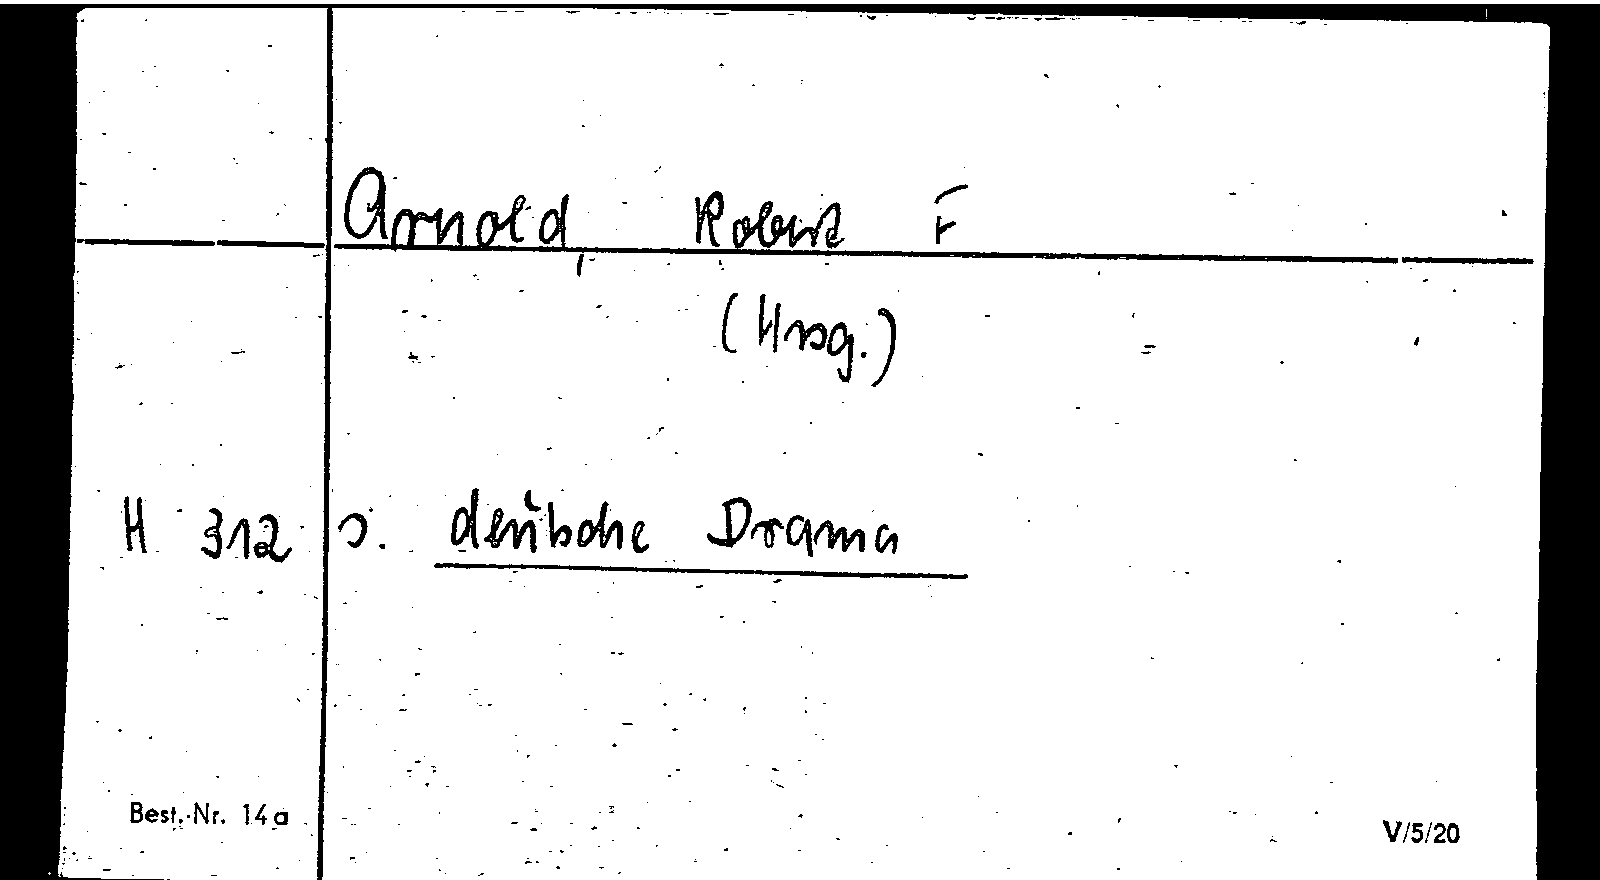 Arnold, Robert F
(Hrsg.)
H 312 s. deutsche Drama
Best.-Nr. 14a
V/5/20